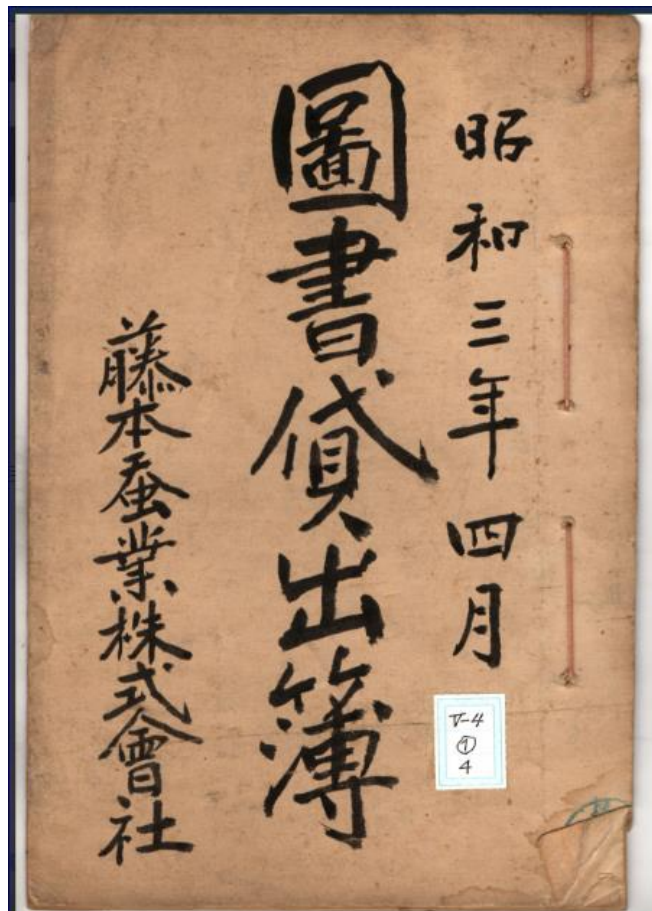 昭和三年四月
圖書貸出簿
藤本蚕業株式會社
V-4
①
4